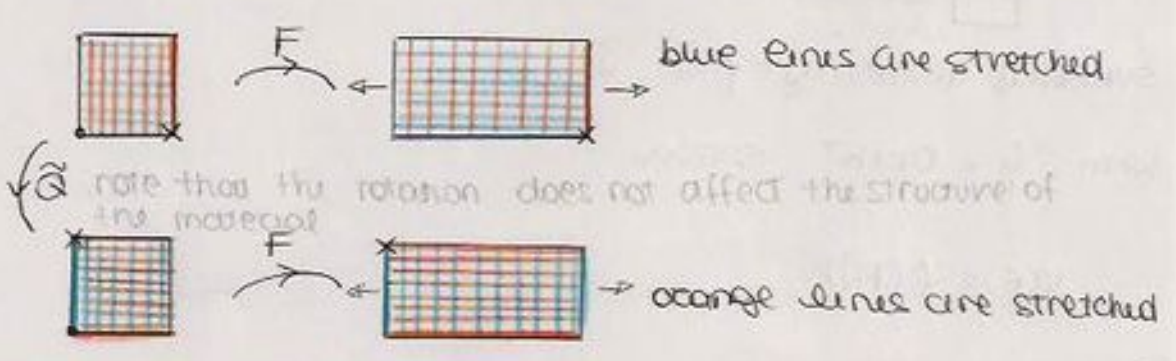 F
blue lines are stretched
Q̃ note that the rotation does not affect the structure of
the material
F
orange lines are stretched